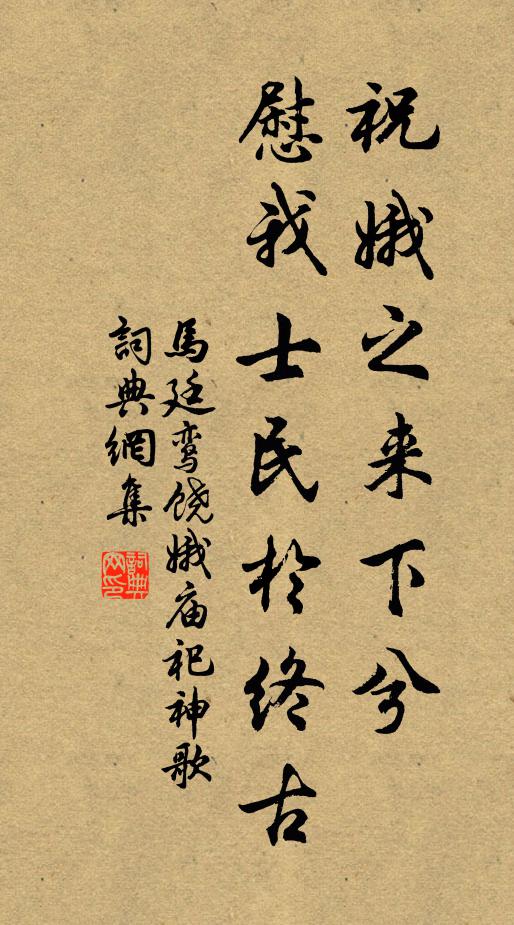 祝娥之来下兮
慰我士民於终古
馬廷鸾饶娥庙祀神歌
詞典網集
詞典网印